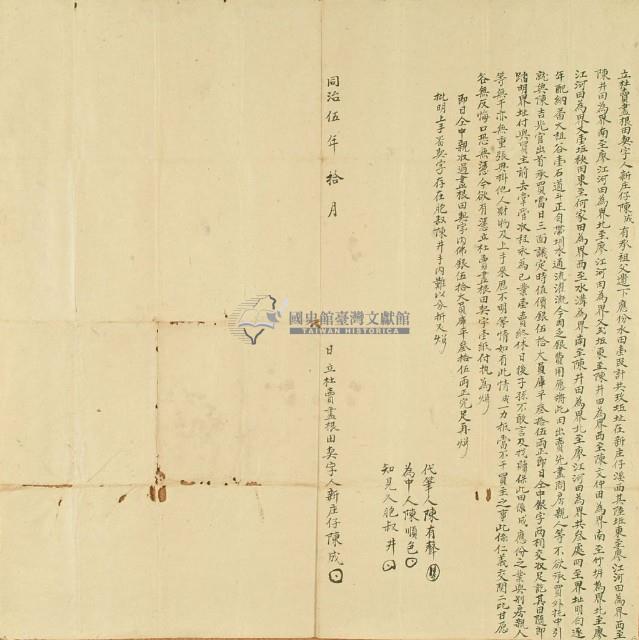 立杜賣盡根田契字人新庄仔陳成有承祖父遺下應份水田壹段計共玫坵址在新庄仔溪西其陸坵東至廖江河田為界西至
陳井田為界南至廖江河田為界北至廖江河田為界又弍坵東至陳井田為界西至陳文仲田為界南至竹圻為界北至廖
江河田為界又壹坵秧田東至何家田為界西至水溝為界南至陳井田為界北至廖江河田為界共叁處四至界址明白逐
年配納番大租谷壹石道斗正自帶圳水通流灌溉今因乏銀費用應將此田出賣先盡問房親人等不欲承買外托中引
就與陳吉光官出首承買當日三面議定時值價銀伍拾大員庫平叁拾伍兩正即日仝中銀字兩相交收足訖其田隨即
踏明界址付與買主前去掌管收租永為己業壹賣終休日後子孫不敢言及找贖保此田係成應份之業與別房親人
等無干亦無重張典掛他人財物及上手來歷不明等情如有此情成一力抵當不干買主之事此係仁義交關二比甘愿
各無反悔口恐無憑今欲有憑立杜賣盡根田契字壹紙付执為炤
即日仝中親收過盡根田契字內佛銀伍拾大員庫平叁拾伍兩正完足再炤
批明上手舊契字存在胞叔陳井手內難以分折又炤
代筆人陳有聲
為中人陳順色
知見人胞叔井
同治伍年拾月 日立杜賣盡根田契字人新庄仔陳成
國史館臺灣文獻館
TAIWAN HISTORICA